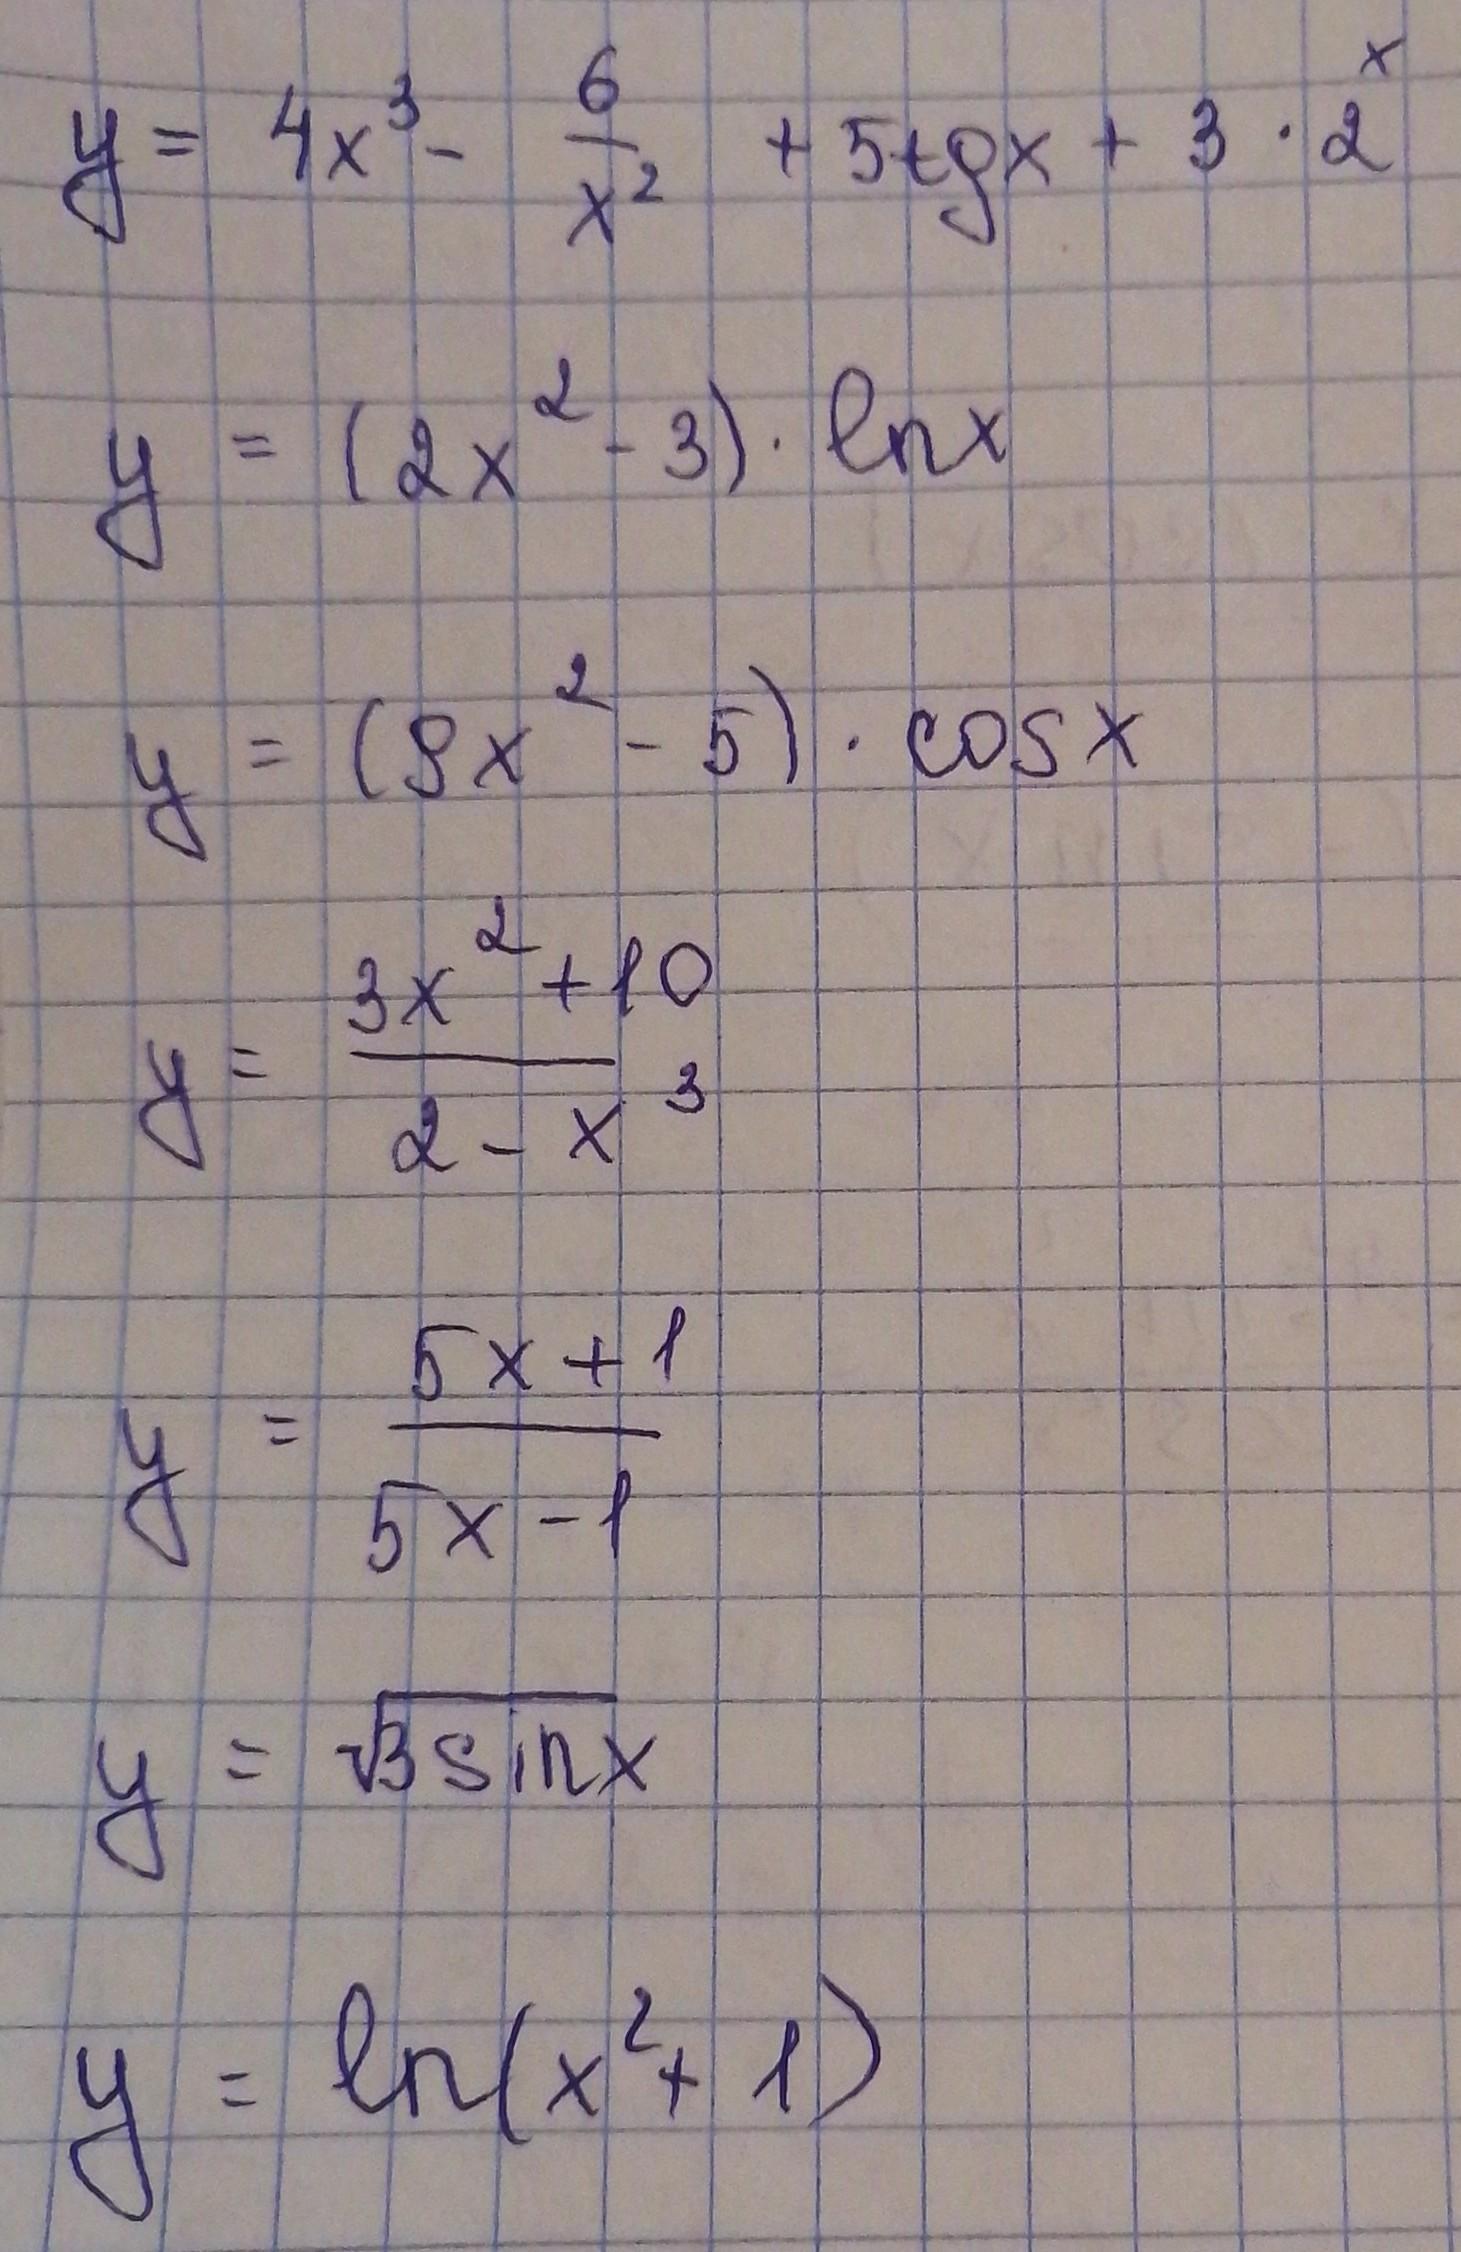 y = 4x³ - 6/x² + 5tgx + 3 · 2ˣ
y = (2x² - 3) · lnx
y = (9x² - 5) · cosx
y = (3x² + 10)/(2 - x³)
y = (5x + 1)/(5x - 1)
y = √(3sinx)
y = ln(x² + 1)